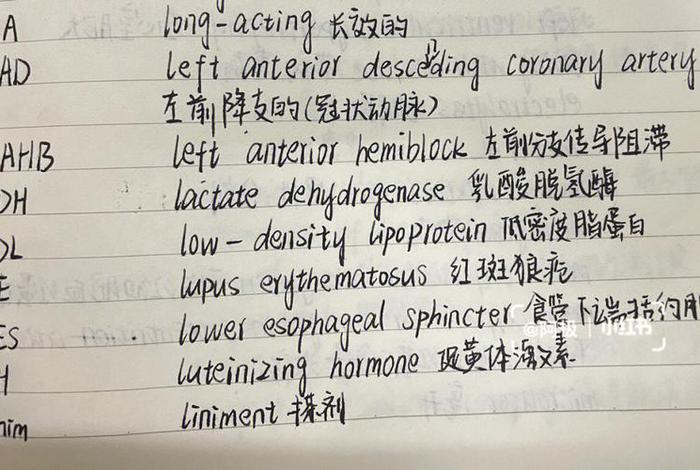 A long-acting 长效的
AD left anterior descending coronary artery
左前降支的(冠状动脉)
AHB left anterior hemiblock 左前分支传导阻滞
DH lactate dehydrogenase 乳酸脱氢酶
DL low-density lipoprotein 低密度脂蛋白
E lupus erythematosus 红斑狼疮
ES lower esophageal sphincter 食管下端括约肌
H luteinizing hormone 促黄体激素
nim liniment 搽剂
小红书